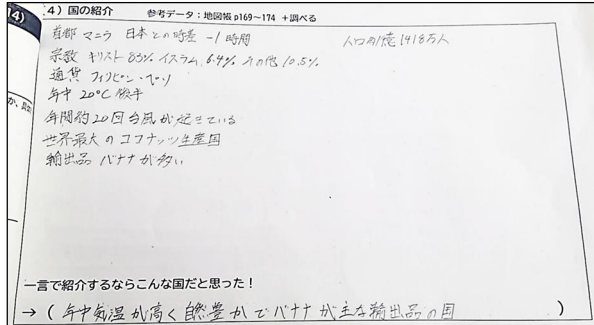 14)
4) 国の紹介 参考データ：地図帳p169～174 ＋調べる
首都 マニラ 日本との時差 -1時間 人口約1億1418万人
宗教 キリスト 83% イスラム 6.4% その他 10.5%
通貨 フィリピン・ペソ
年中 20℃後半
年間約20回台風が起きている
世界最大のココナッツ生産国
輸出品 バナナが多い
一言で紹介するならこんな国だと思った！
→ ( 年中気温が高く自然豊かでバナナが主な輸出品の国 )